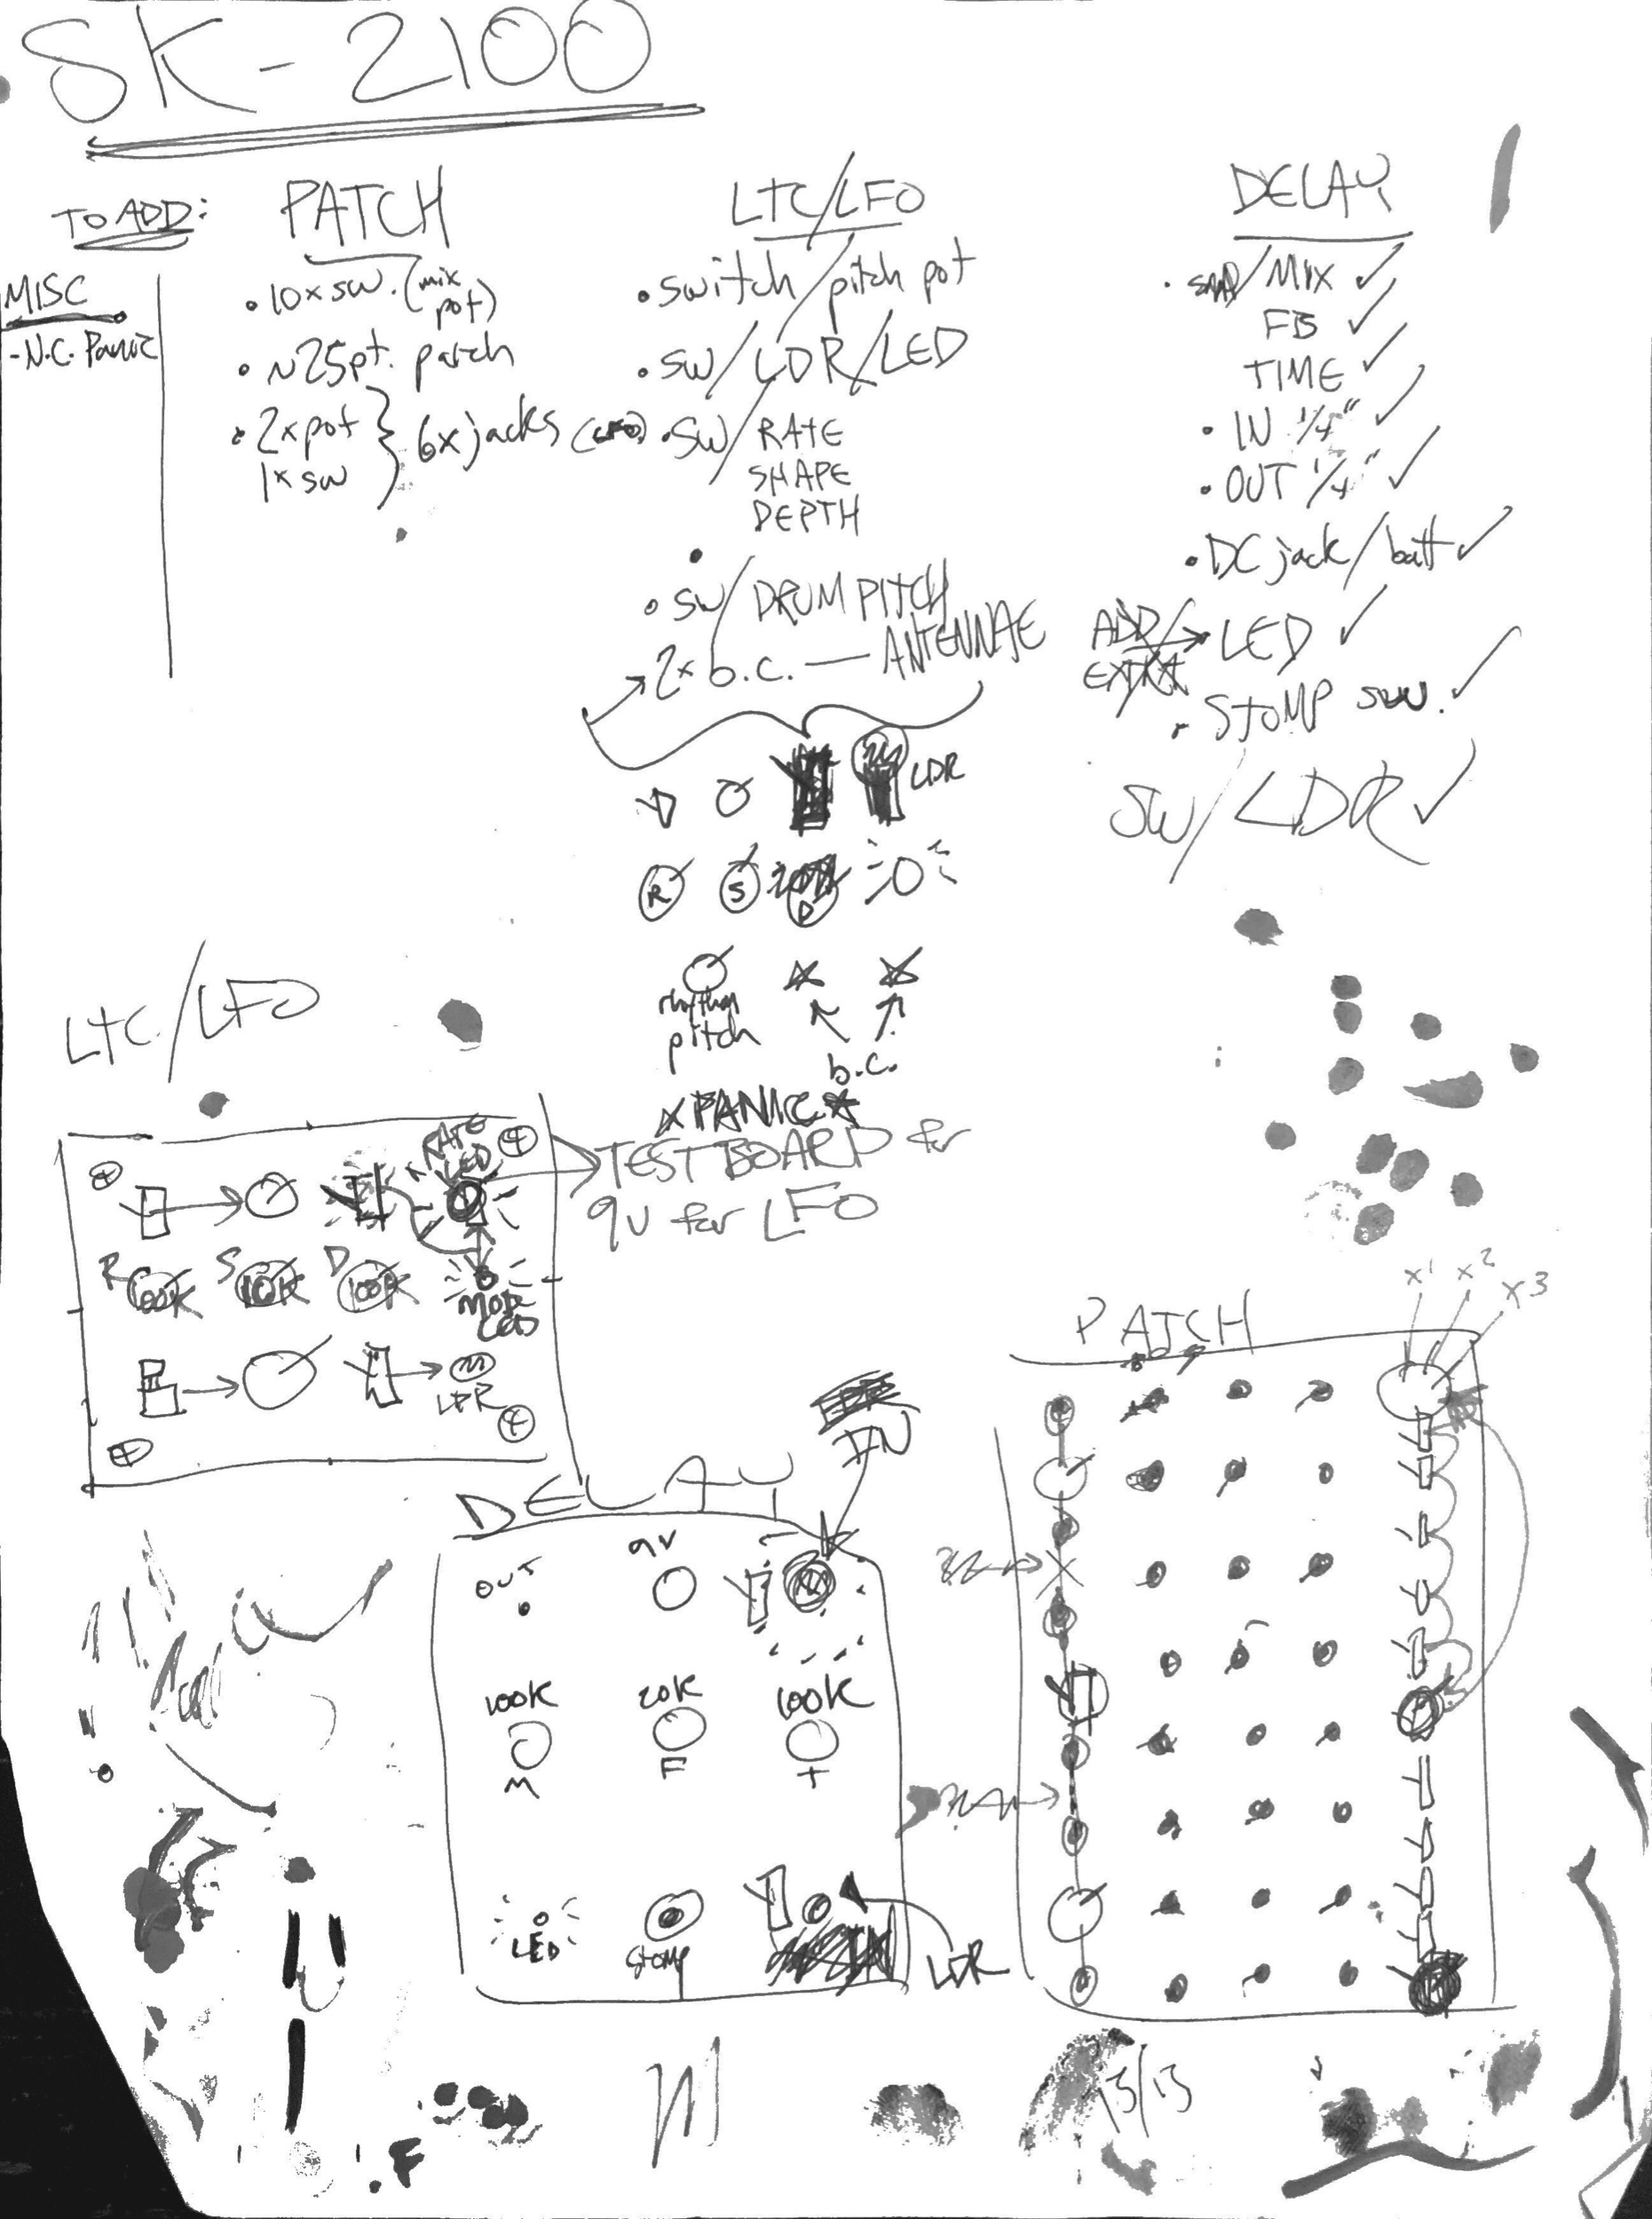 SK-2100
TO ADD:
MISC
-N.C. Panic
PATCH
•10x sw. (mix pot)
•~25pt. patch
•2xpot } 6x jacks (LFO)
1x sw
LTC/LFO
•switch/pitch pot
•SW/LDR/LED
•SW/RATE
SHAPE
DEPTH
•
•SW/DRUM PITCH
2x b.c. — ANTENNAE
DELAY
/MIX ✓
FB ✓
TIME ✓
•IN 1/4" ✓
•OUT 1/4" ✓
•DC jack/batt ✓
ADD EXTRA → LED ✓
•STOMP sw. ✓
SW/LDR ✓
LDR
R S D
rhythm
pitch
b.c.
PANIC
LTC/LFO
RATE
LED
TEST BOARD for
9V for LFO
R 100K S 10K D 100K
MOD
LED
LDR
DELAY
IN
OUT 9V
100K 20K 100K
M F T
LED STOMP
LDR
PATCH
x1 x2 x3
13/13